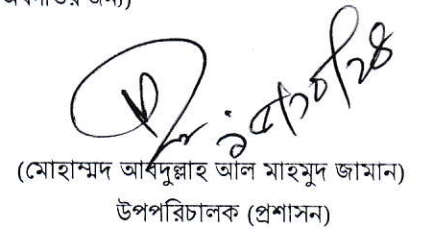 (মোহাম্মদ আবদুল্লাহ আল মাহমুদ জামান)
উপপরিচালক (প্রশাসন)